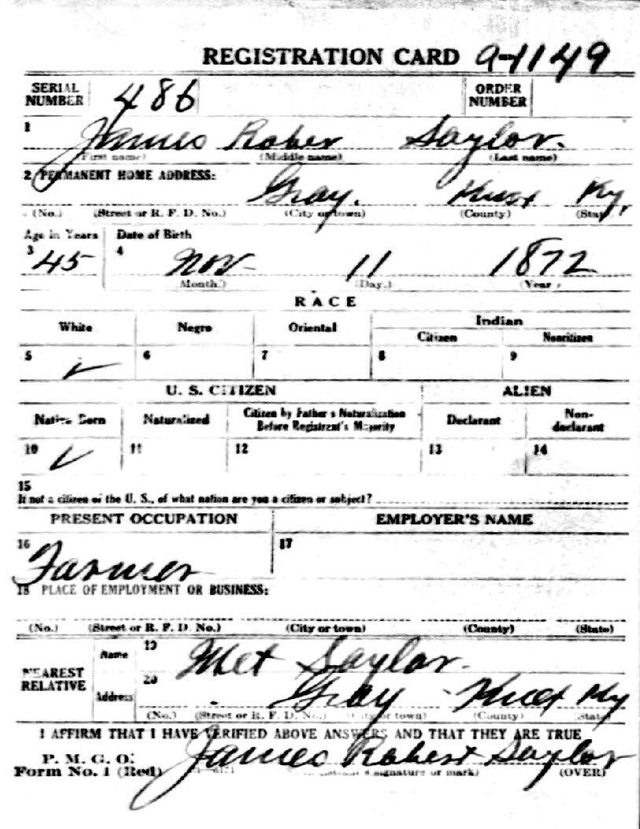 REGISTRATION CARD 9-1149
SERIAL NUMBER 486 ORDER NUMBER
1 James Rober Saylor.
(First name) (Middle name) (Last name)
2 PERMANENT HOME ADDRESS: Gray. Knox Ky,
(No.) (Street or R. F. D. No.) (City or town) (County) (State)
Age in Years Date of Birth
3 45 4 Nov 11 1872
(Month.) (Day.) (Year.)
RACE
White Negro Oriental Indian
Citizen Noncitizen
5 ✓ 6 7 8 9
U. S. CITIZEN ALIEN
Native Born Naturalized Citizen by Father's Naturalization Before Registrant's Majority Declarant Non-declarant
10 ✓ 11 12 13 14
15
If not a citizen of the U. S., of what nation are you a citizen or subject?
PRESENT OCCUPATION EMPLOYER'S NAME
16 Farmer 17
18 PLACE OF EMPLOYMENT OR BUSINESS:
(No.) (Street or R. F. D. No.) (City or town) (County) (State)
NEAREST RELATIVE Name 19 Met Saylor.
Address 20 Gray Knox Ky
(No.) (Street or R. F. D. No.) (City or town) (County) (State)
I AFFIRM THAT I HAVE VERIFIED ABOVE ANSWERS AND THAT THEY ARE TRUE
P. M. G. O.
Form No. 1 (Red) James Robert Saylor
signature or mark) (OVER)